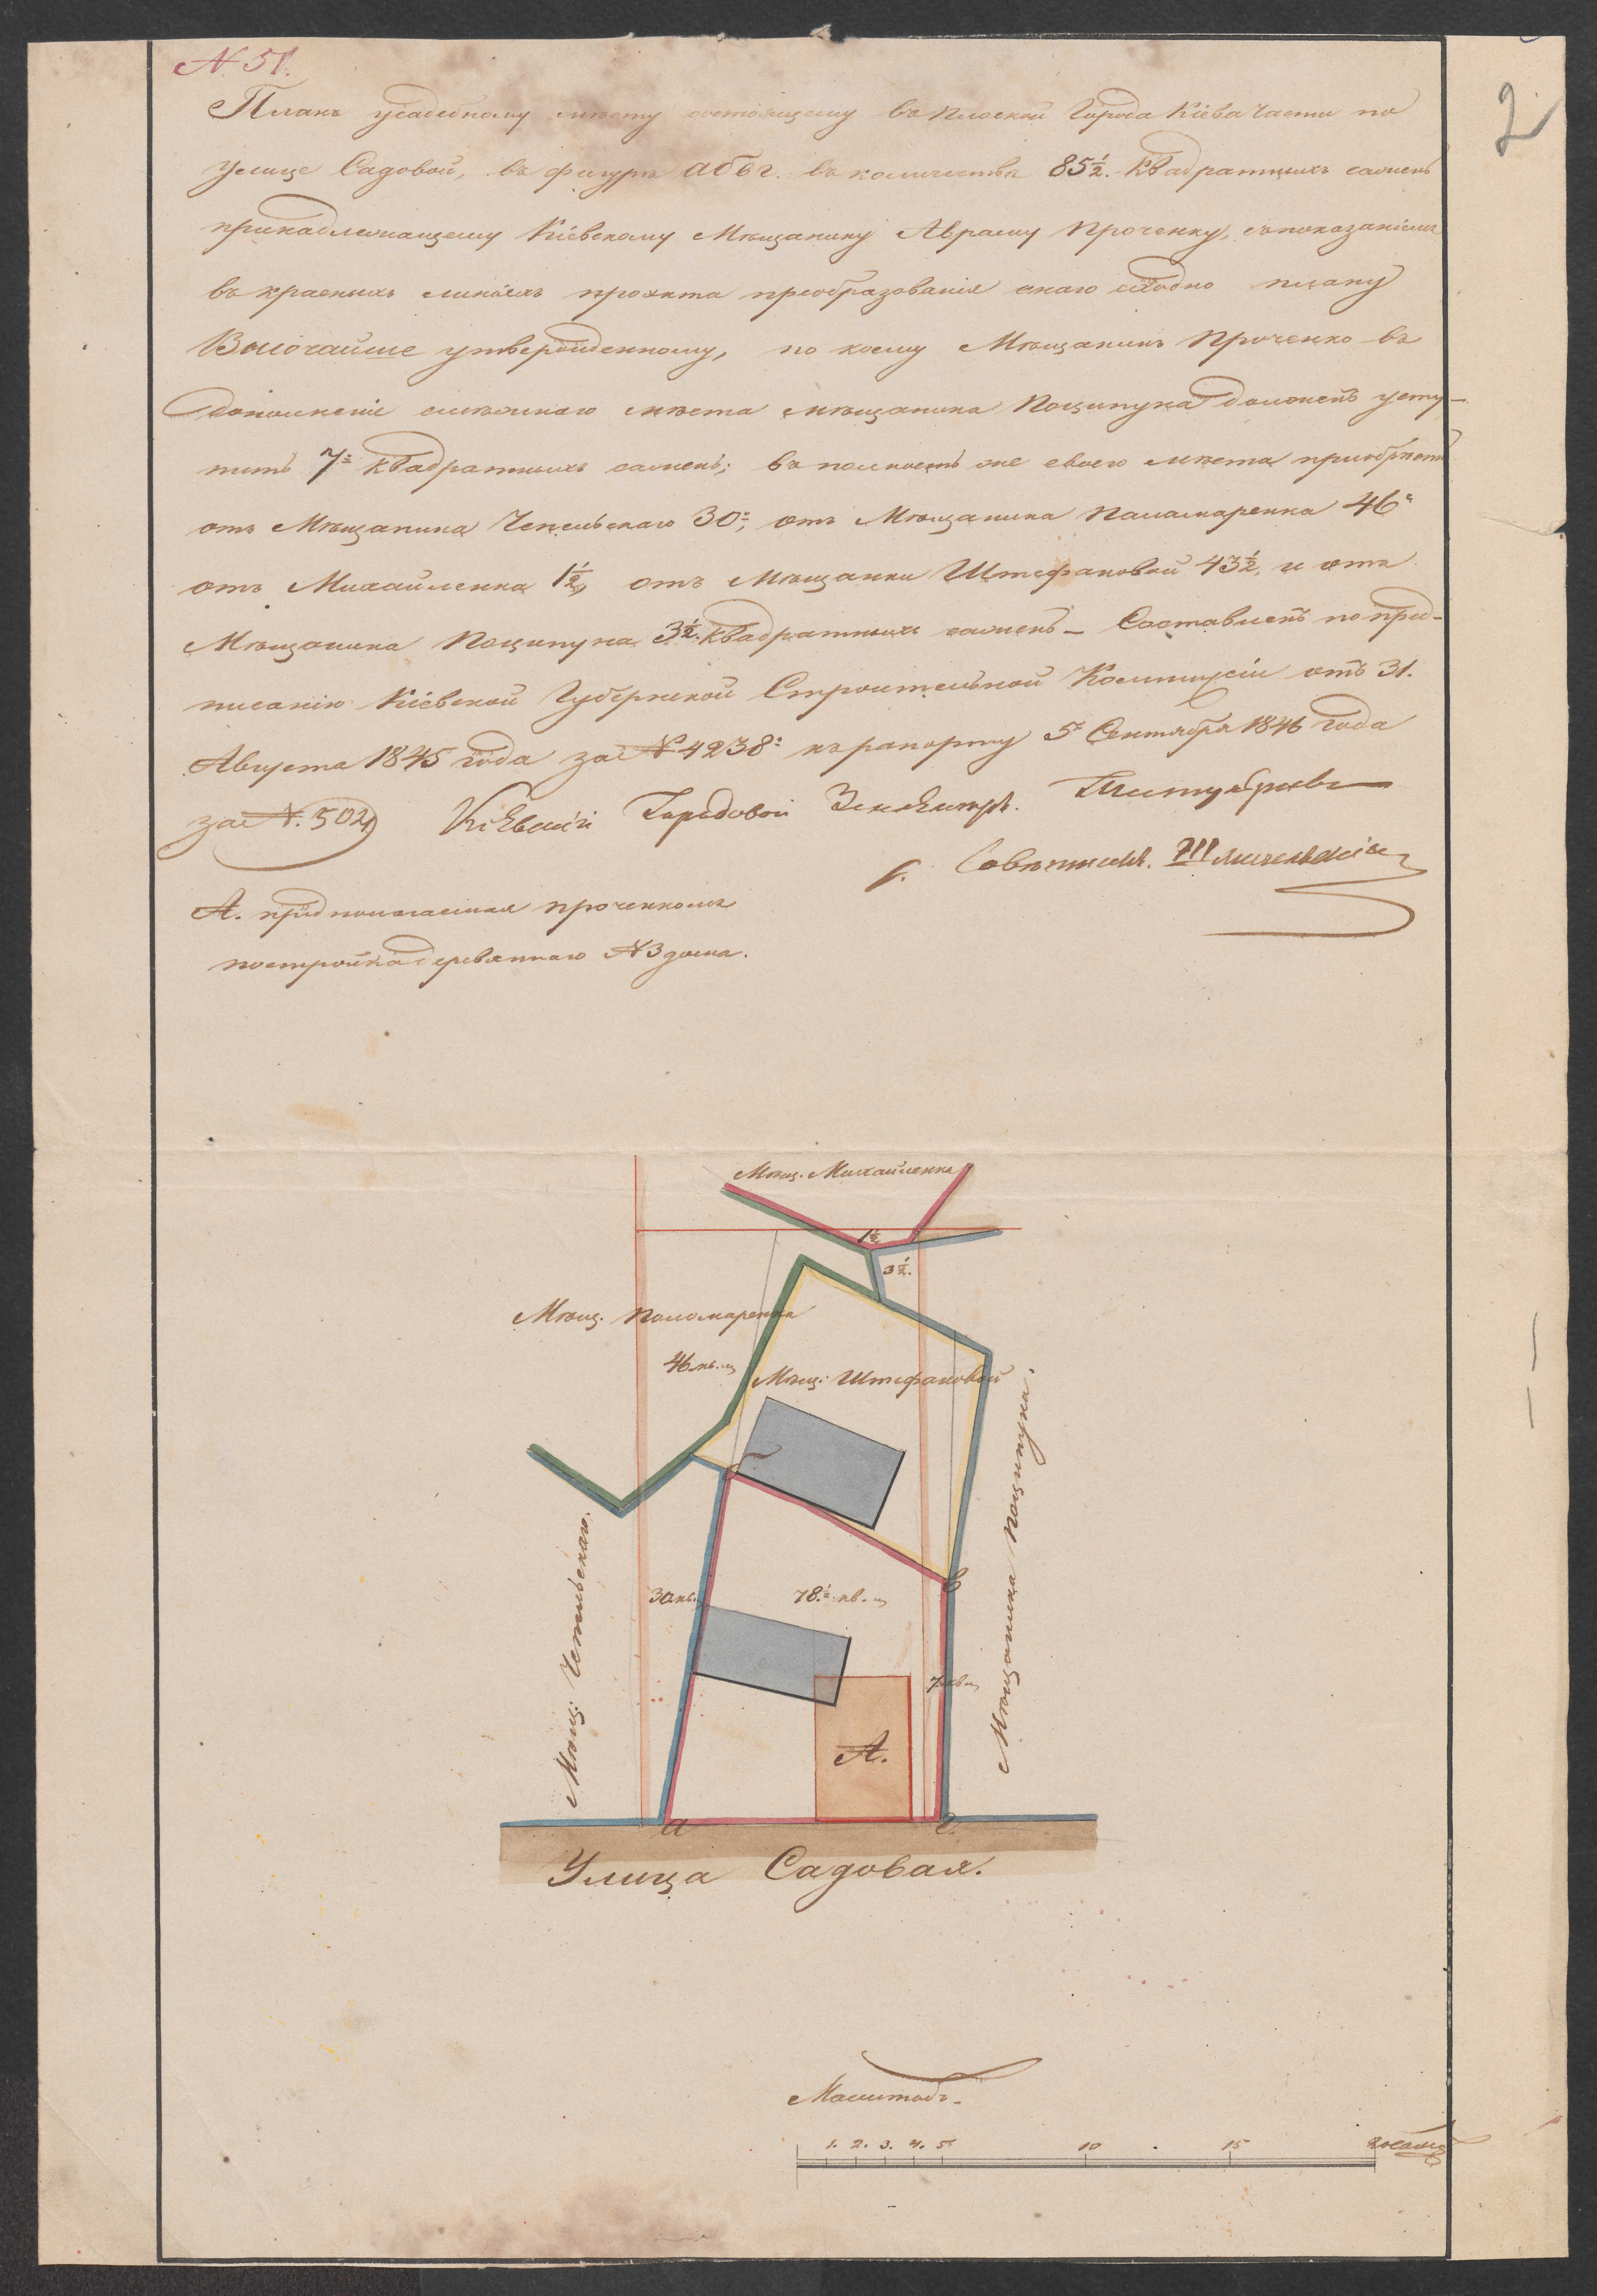 N. 51.
2
Планъ усадебному мѣсту состоящему въ Плоской Города Кіева части по
улице Садовой, въ фигурѣ абвг. въ количествѣ 85½. квадратныхъ сажень
принадлежащему Кіевскому Мѣщанину Авраму Проченку, съ показаніемъ
въ красныхъ линіяхъ проэкта преобразованія онаго сходно плану
Высочайше утвержденному, по коему Мѣщанинъ Проченко въ
дополненіе смежнаго мѣста мѣщанина Поципуна долженъ усту-
пить 7 квадратныхъ сажень; въ полность же своего мѣста пріобрѣтет
отъ Мѣщанина Чепельскаго 30; отъ Мѣщанина Паламаренка 46
отъ Михайленка 1½, отъ Мѣщанки Штефановой 43½, и отъ
Мѣщанина Поципуна 3½. квадратныхъ сажень - Составленъ по пред-
писанію Кіевской Губернской Строительной Коммисіи отъ 31.
Августа 1845 года за N 4238 къ рапорту 5 Сентября 1846 года
за N. 502
Кіевскій Городовой
Совѣтникъ.
А. предполагаемая Проченкомъ
постройка деревяннаго N3 дома.
Мѣщ. Михайленка
1½
3½.
Мѣщ. Паломаренка
46 кв. с
Мѣщ: Штефановой
Мѣщанина Поципуна.
Мѣщ: Чепельскаго.
б
в
30 кв.
78.½ кв. с
7 кв с
А.
а
г.
Улица Садовая.
Масштабъ.
1. 2. 3. 4. 5 10 15 20 саж